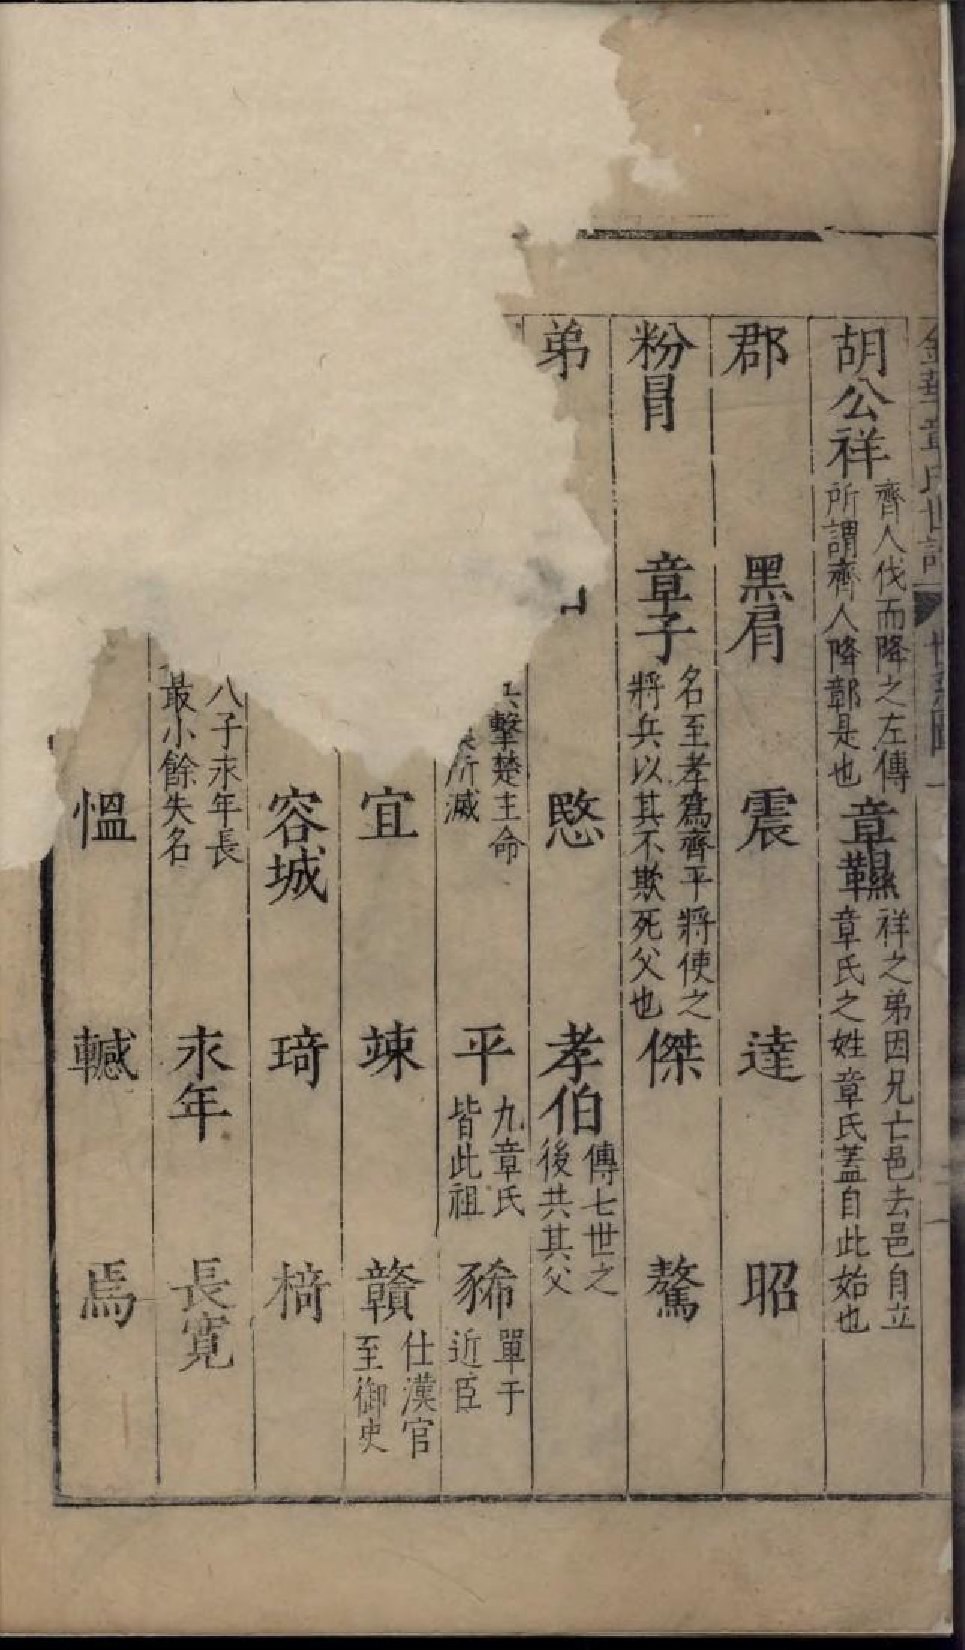 金華章氏世譜 世系圖 一
胡公祥 齊人伐而降之左傳所謂齊人降鄣是也 章韅 祥之弟因兄亡邑去邑自立章氏之姓章氏蓋自此始也
郡 黑肩 震 達 昭
粉冐 章子 名至孝爲齊平將使之將兵以其不欺死父也 傑 驁
弟 愍 孝伯 傳七世之後共其父
擊楚王命 所滅 平 九章氏皆此祖 豨 單于近臣
宜 竦 贛 仕漢官至御史
容城 琦 㭳
八子永年長最小餘失名 永年 長寛
愠 轗 焉